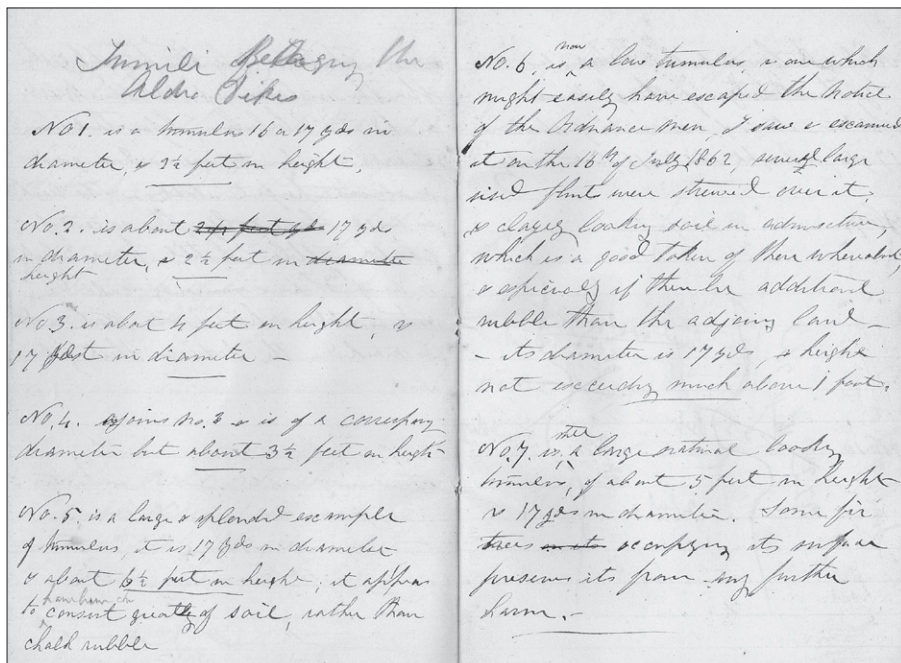 Tumili Betwgn the
Aldro Dikes
No 1. is a tumulus 16 or 17 yds in
diameter, & 2½ feet in height.
No. 2. is about 17 yds
in diameter, & 2½ feet in diameter
height
No 3. is about 4 feet in height, &
17 yds in diameter –
No. 4. ajoins No. 3 & is of a
diameter but about 3½ feet in height
No. 5. is a large & splended example
of tumulus, it is 17 yds in diameter
& about 6½ feet in height; it appears
to consist greatly of soil, rather than
chalk rubble
No. 6, is now a low tumulus, & one which
might easily have escaped the Notice
of the Ordnance men, I saw & examined
it on the 16th of July 1862, several large
sised flints were strewed over it,
& clayey looking soil in admixture,
which is a good token of there whereabouts,
& especially if there be additional
rubble than the adjoing land –
– its diameter is 17 yds, & height
not exceeding much above 1 foot.
No. 7. is still a large natural looking
tumulus, of about 5 feet in height
& 17 yds in diameter. Some fir
trees in its occupying its surface
preserves its from any further
harm. –